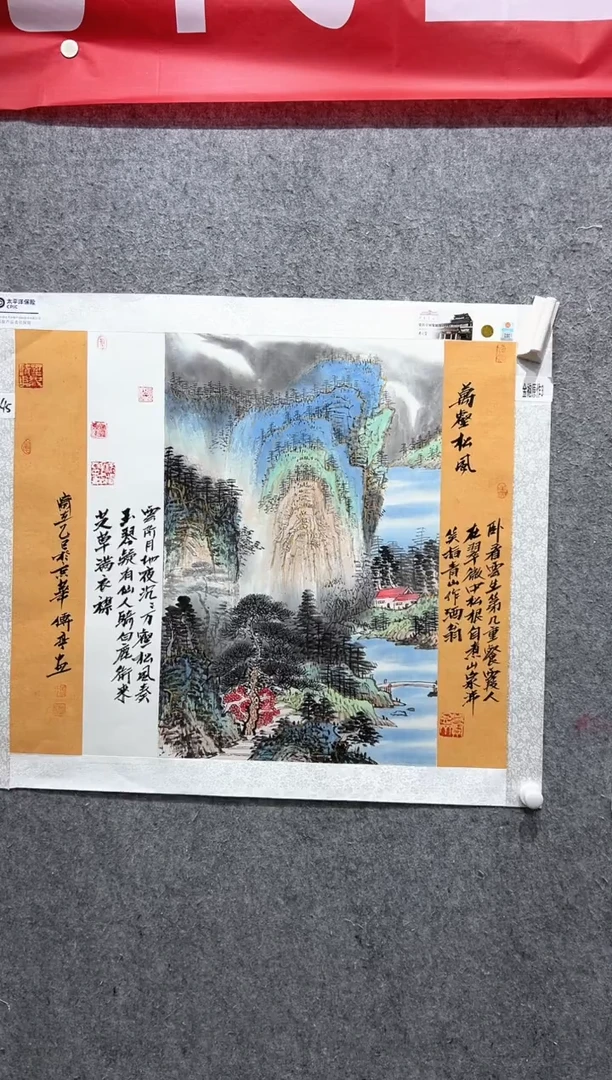 太平洋保险
CPIC
萬壑松風
卧看雲生第几重餐霞人
在翠微中松根自煮山泉沸
笑指青山作酒翁
雲阶月地夜沉〻万壑松風奏
玉琴疑有仙人騎白鹿銜来
芝草满衣襟
乙巳於京華
画